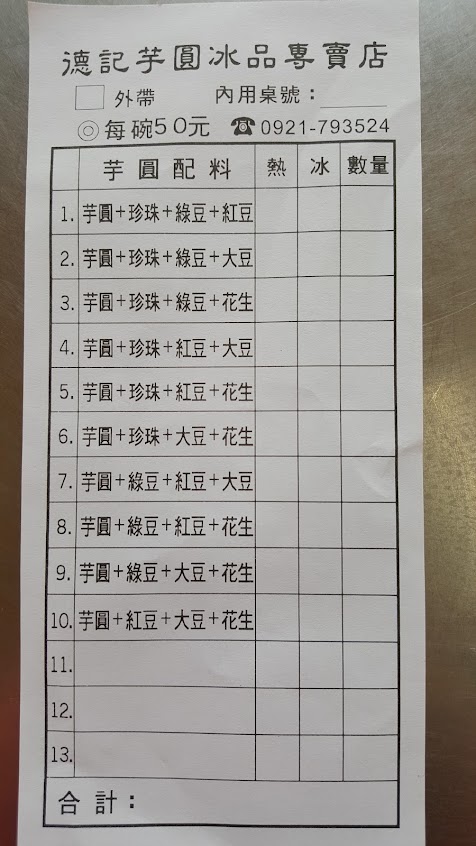 德記芋圓冰品專賣店
外帶 內用桌號：
◎每碗50元 ☎0921-793524
芋圓配料 熱 冰 數量
1. 芋圓+珍珠+綠豆+紅豆
2. 芋圓+珍珠+綠豆+大豆
3. 芋圓+珍珠+綠豆+花生
4. 芋圓+珍珠+紅豆+大豆
5. 芋圓+珍珠+紅豆+花生
6. 芋圓+珍珠+大豆+花生
7. 芋圓+綠豆+紅豆+大豆
8. 芋圓+綠豆+紅豆+花生
9. 芋圓+綠豆+大豆+花生
10. 芋圓+紅豆+大豆+花生
11.
12.
13.
合計：